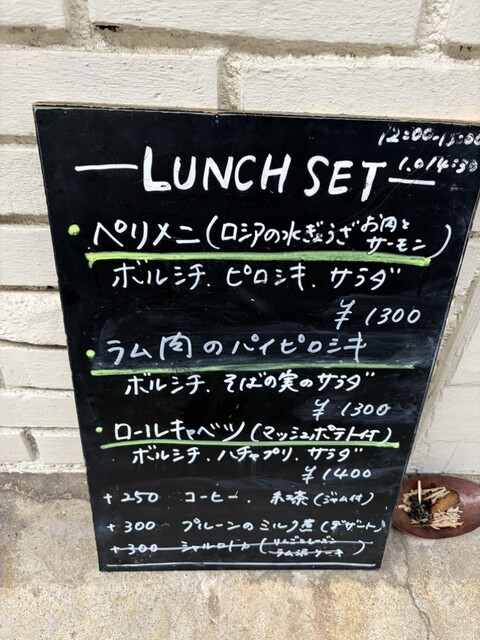 12:00-15:00
L.O 14:30
LUNCH SET
ペリメニ(ロシアの水ぎょうざ お肉とサーモン)
ボルシチ、ピロシキ、サラダ
¥1300
ラム肉のパイピロシキ
ボルシチ、そばの実のサラダ
¥1300
ロールキャベツ(マッシュポテト付)
ボルシチ、ハチャプリ、サラダ
¥1400
+250 コーヒー、紅茶(ジャム付)
+300 プルーンのミルク煮(デザート)
+300 シャルロトカ(りんごとレーズン ラム酒ケーキ)